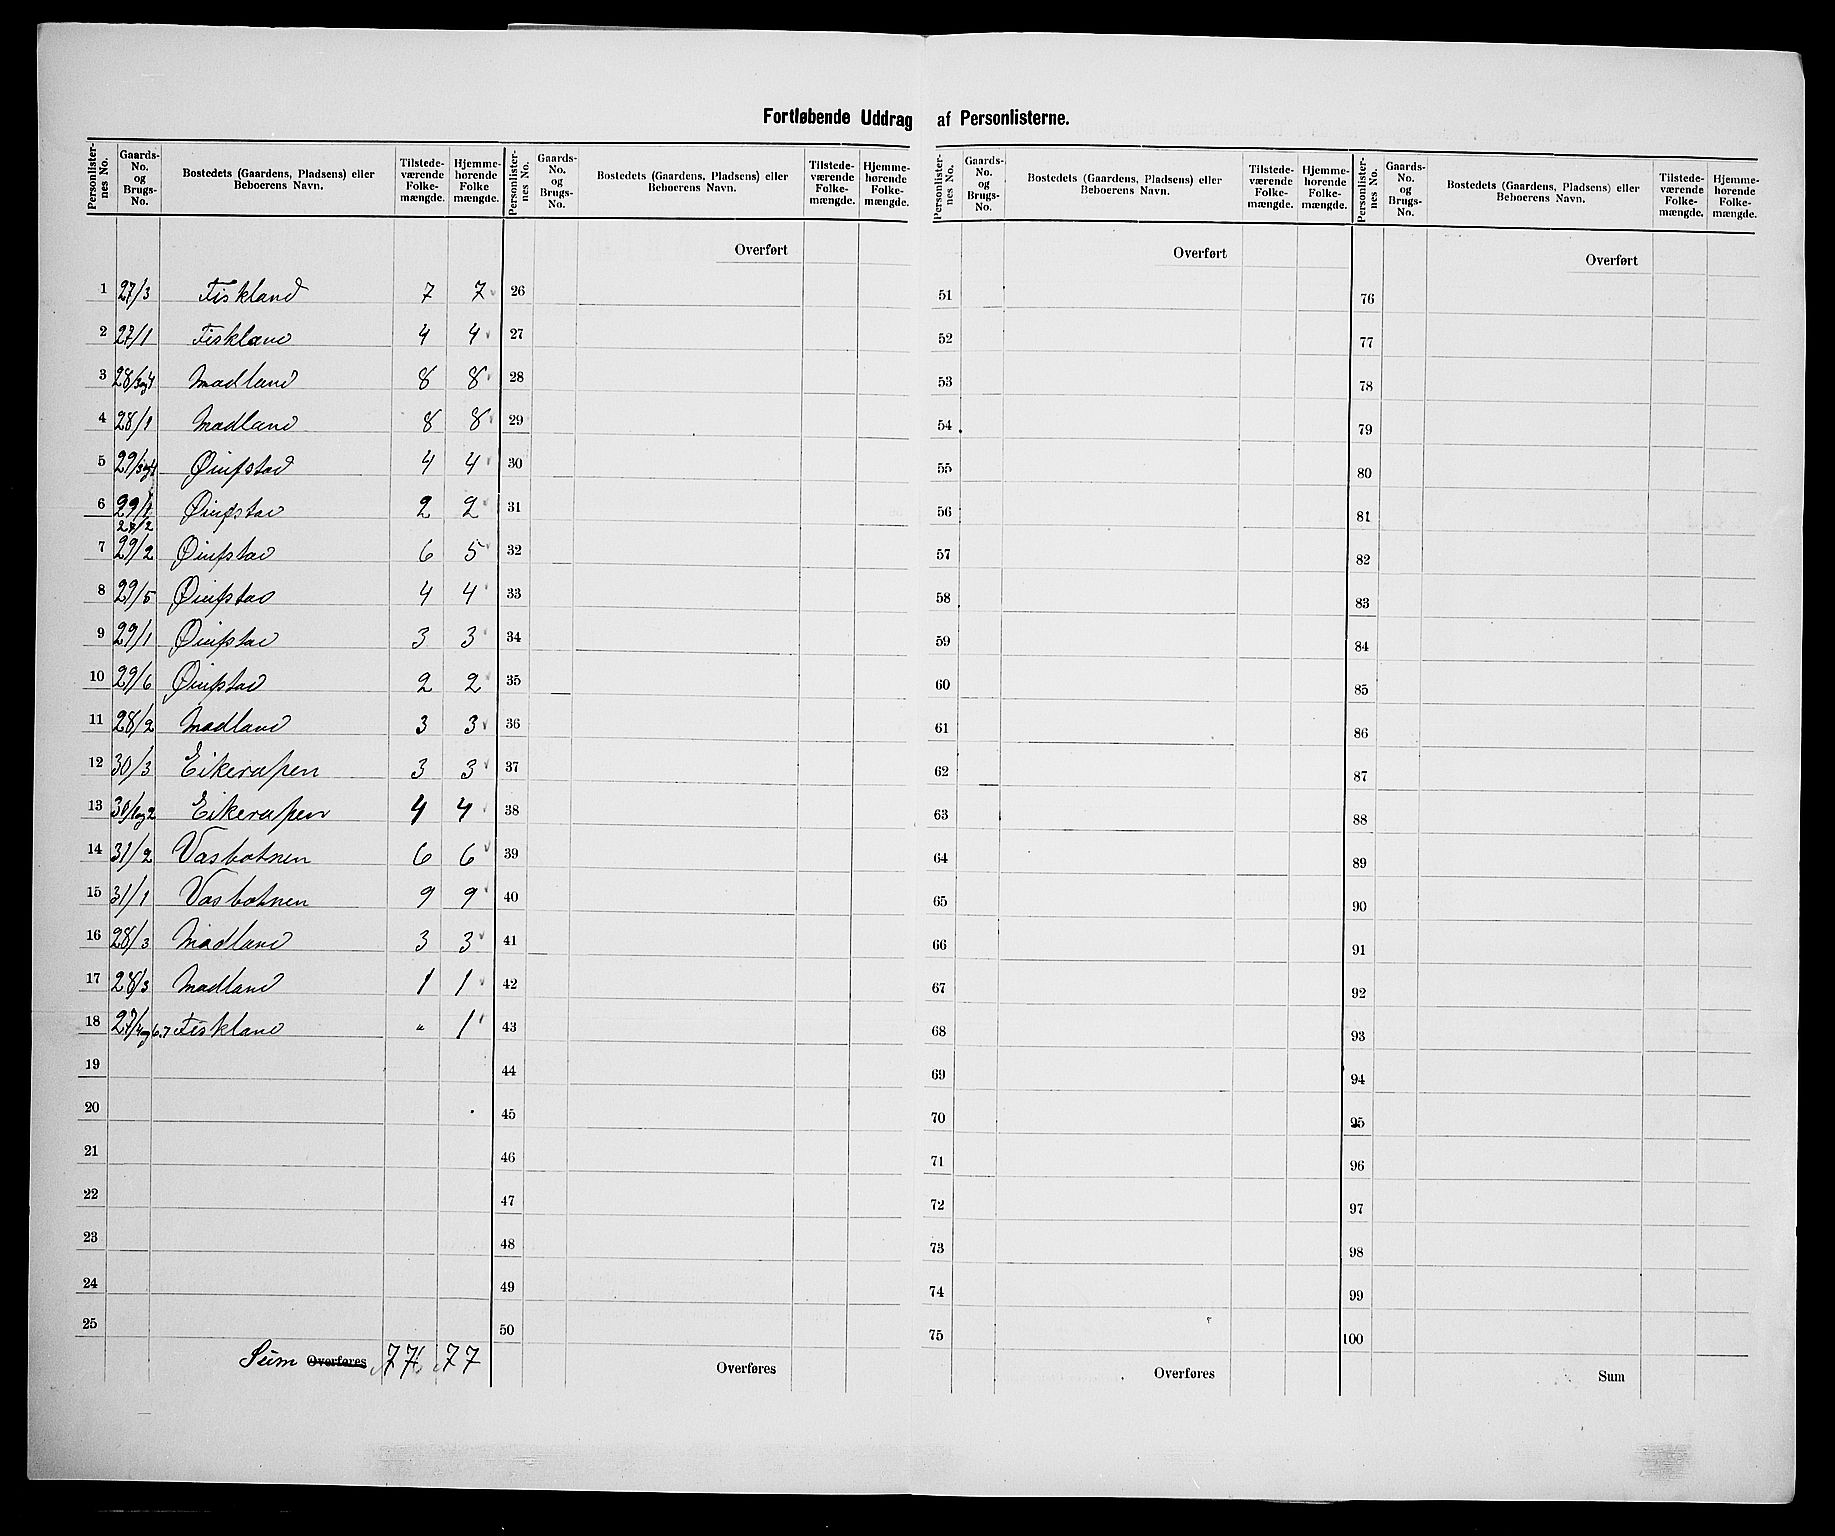 Fortløbende Uddrag af Personlisterne.
Personlister-nes No. | Gaards-No. og Brugs-No. | Bostedets (Gaardens, Pladsens) eller Beboerens Navn. | Tilstede-værende Folke-mængde. | Hjemme-hørende Folke mængde.
Personlister-nes No. | Gaards-No. og Brugs-No. | Bostedets (Gaardens, Pladsens) eller Beboerens Navn. | Tilstede-værende Folke-mængde. | Hjemme-hørende Folke-mængde.
Personlister-nes No. | Gaards-No. og Brugs-No. | Bostedets (Gaardens, Pladsens) eller Beboerens Navn. | Tilstede-værende Folke-mængde. | Hjemme-hørende Folke-mængde.
Personlister-nes No. | Gaards-No. og Brugs-No. | Bostedets (Gaardens, Pladsens) eller Beboerens Navn. | Tilstede-værende Folke-mængde. | Hjemme-hørende Folke-mængde.
Overført Overført Overført
1 27/3 Fiskland 7 7 26 51 76
2 27/1 Fiskland 4 4 27 52 77
3 28/3og4 Madland 8 8 28 53 78
4 28/1 Madland 8 8 29 54 79
5 29/3og4 Øinfstad 4 4 30 55 80
6 29/1 Øinfstad 2 2 31 56 81
27/2
7 29/2 Øinfstad 6 5 32 57 82
8 29/5 Øinfstad 4 4 33 58 83
9 29/1 Øinfstad 3 3 34 59 84
10 29/6 Øinfstad 2 2 35 60 85
11 28/2 Madland 3 3 36 61 86
12 30/3 Eikerapen 3 3 37 62 87
13 30/1og2 Eikerapen 4 4 38 63 88
14 31/2 Vasbotnen 6 6 39 64 89
15 31/1 Vasbotnen 9 9 40 65 90
16 28/3 Madland 3 3 41 66 91
17 28/3 Madland 1 1 42 67 92
18 27/4og6.7 Fiskland " 1 43 68 93
19 44 69 94
20 45 70 95
21 46 71 96
22 47 72 97
23 48 73 98
24 49 74 99
25 50 75 100
Sum Overføres 77 77 Overføres Overføres Sum